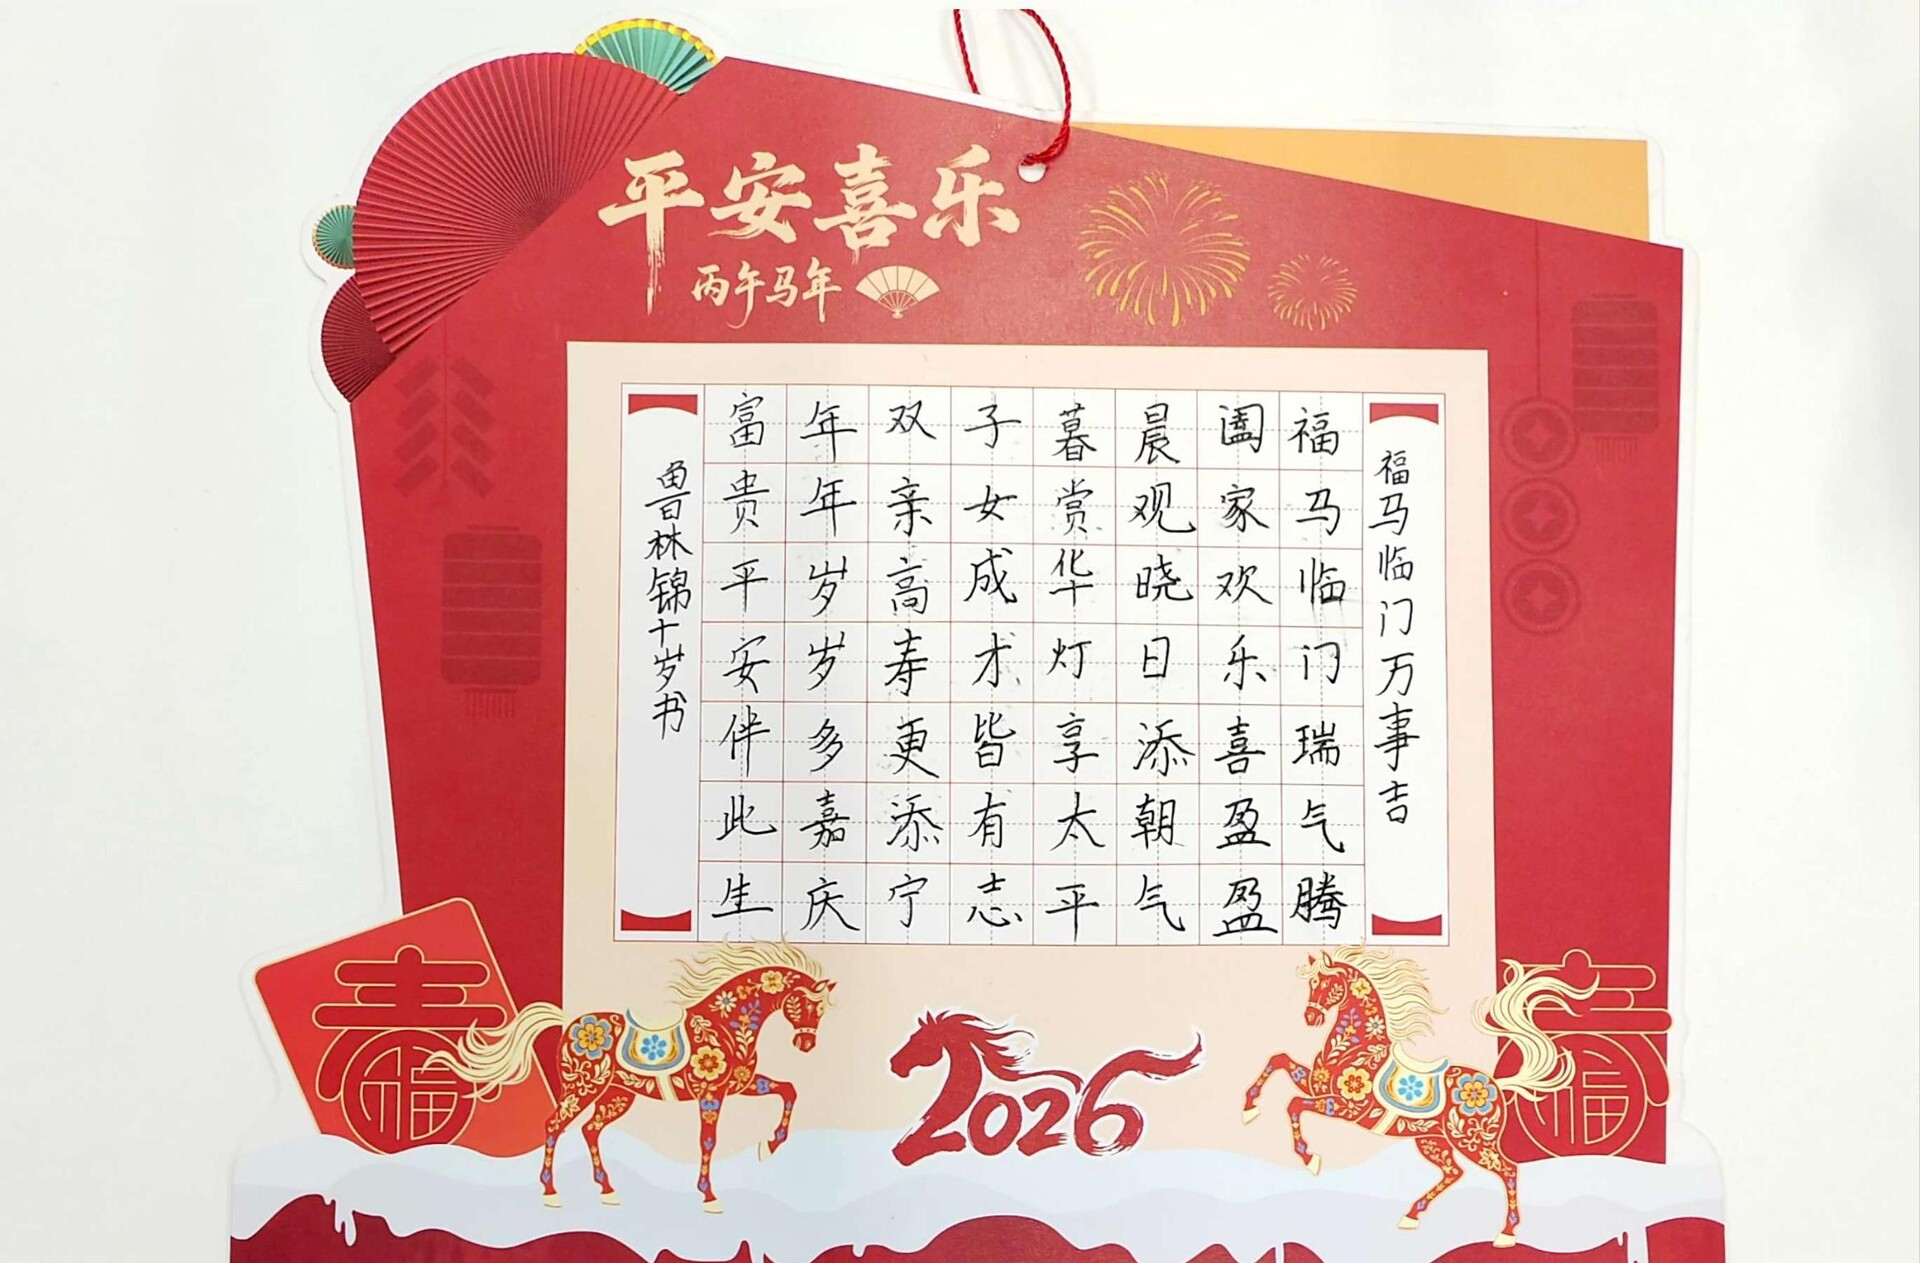 平安喜乐
丙午马年
福马临门万事吉
福马临门瑞气腾
阖家欢乐喜盈盈
晨观晓日添朝气
暮赏华灯享太平
子女成才皆有志
双亲高寿更添宁
年年岁岁多嘉庆
富贵平安伴此生
鲁林锦十岁书
春福
2026
春福